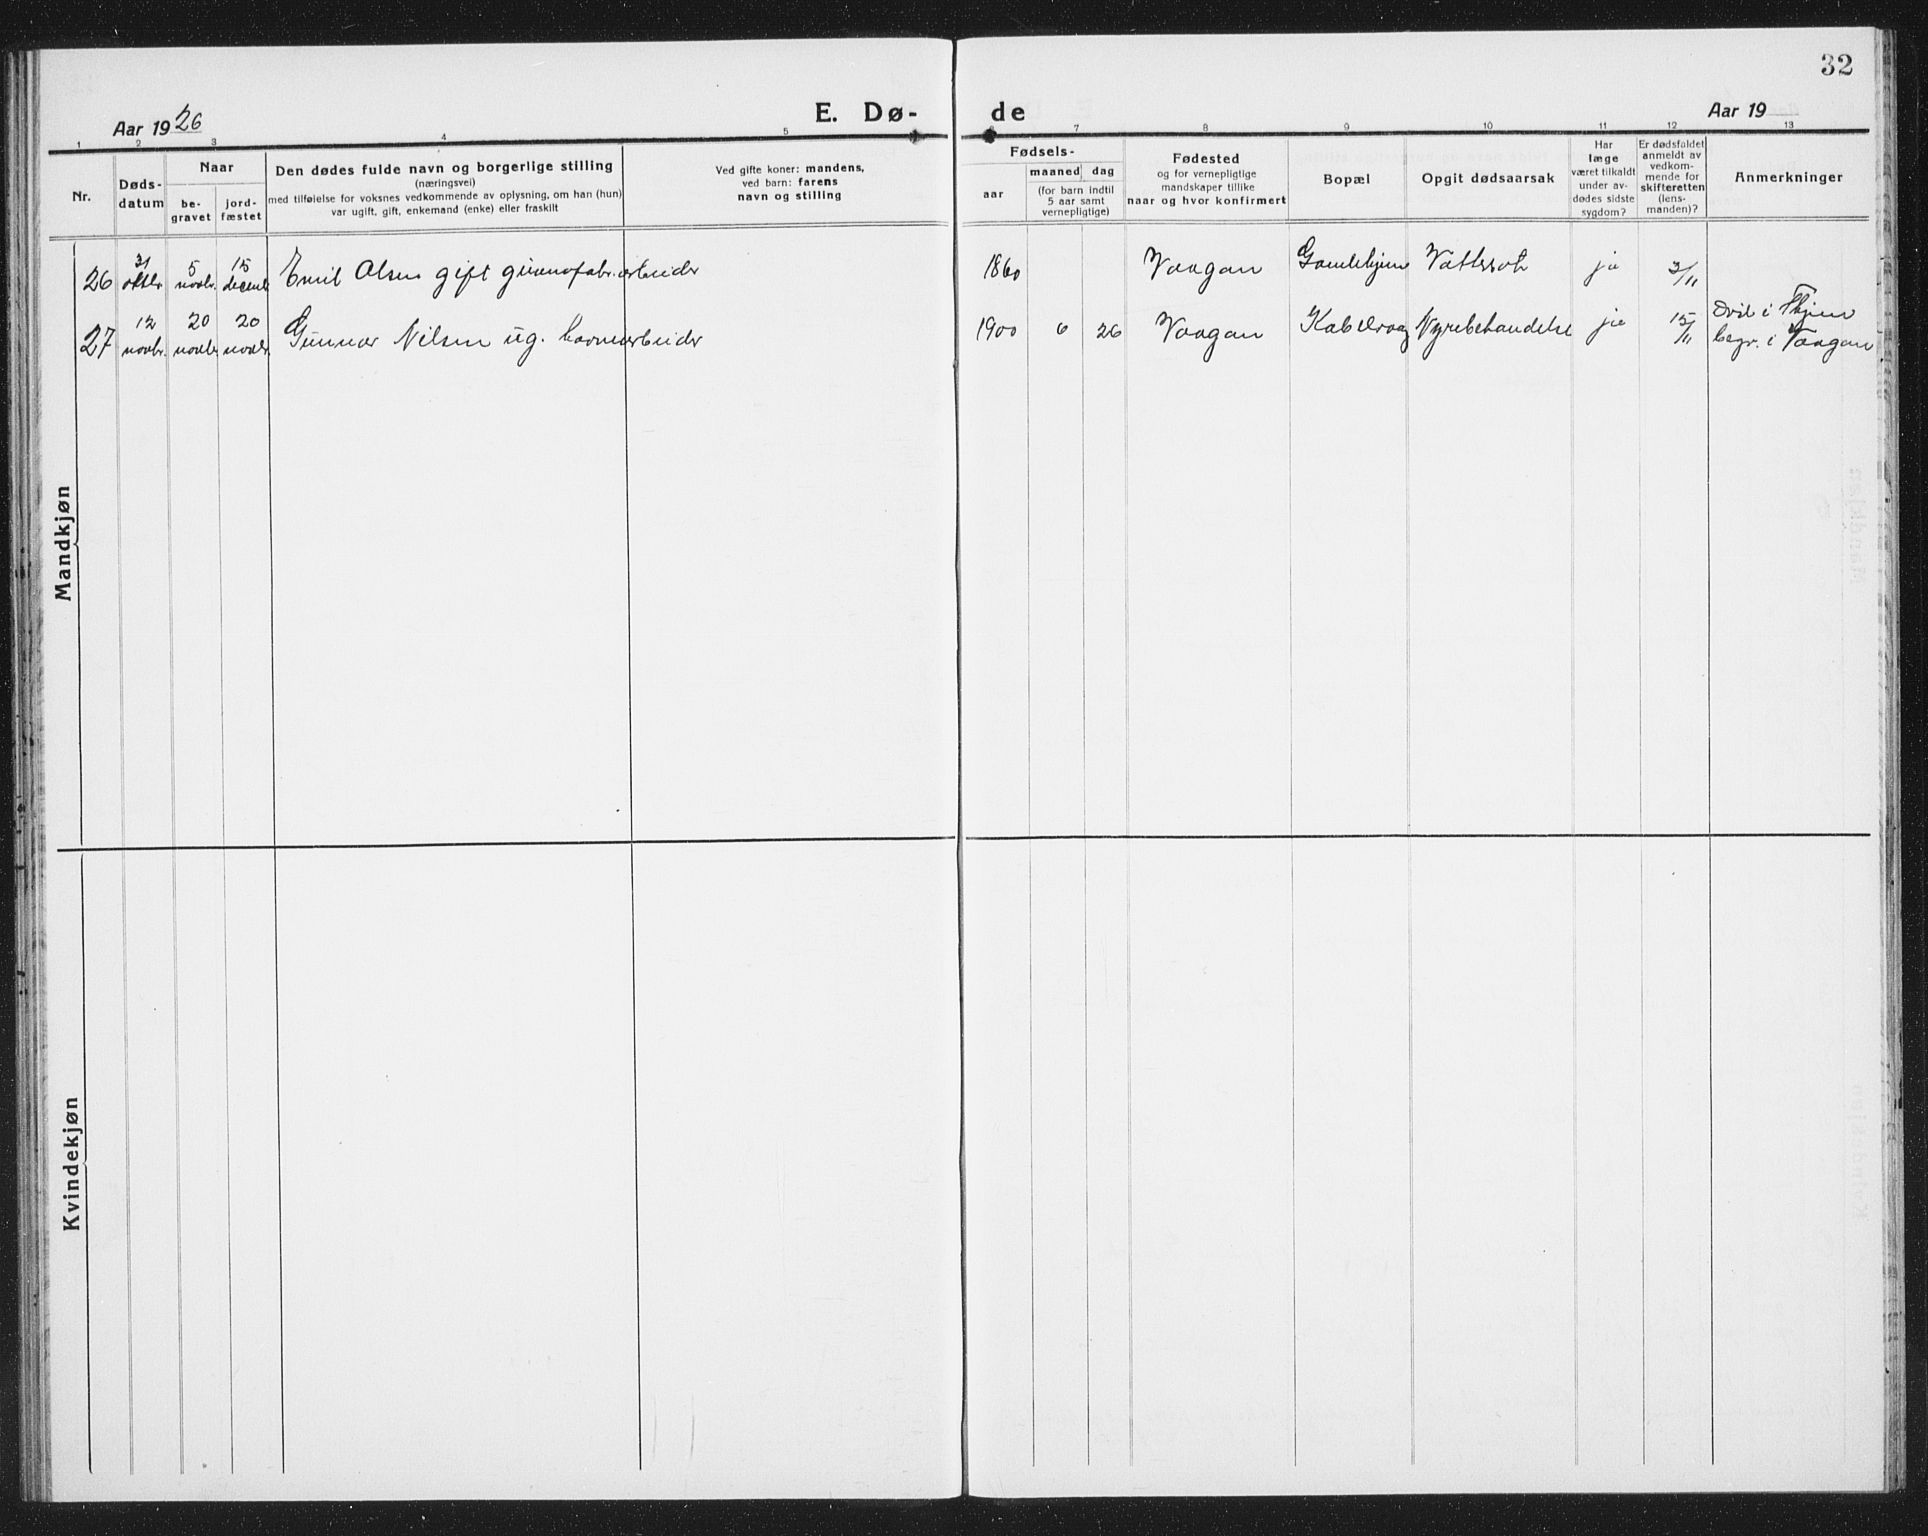 32
Aar 1926
E. Dø-
de
Aar 19
1 2 3 4 5 6 7 8 9 10 11 12 13
Nr.
Døds-
datum
Naar
be-
gravet
jord-
fæstet
Den dødes fulde navn og borgerlige stilling
(næringsvei)
med tilføielse for voksnes vedkommende av oplysning, om han (hun)
var ugift, gift, enkemand (enke) eller fraskilt
Ved gifte koner: mandens,
ved barn: farens
navn og stilling
Fødsels-
aar
maaned dag
(for barn indtil
5 aar samt
vernepligtige)
Fødested
og for vernepligtige
mandskaper tillike
naar og hvor konfirmert
Bopæl
Opgit dødsaarsak
Har
læge
været tilkaldt
under av-
dødes sidste
sygdom?
Er dødsfaldet
anmeldt av
vedkom-
mende for
skifteretten
(lens-
manden)?
Anmerkninger
26 31 oktbr. 5 novbr. 15 decemb. Emil Olsen gift guanofabr.arbeider 1860 Vaagan Gamlehjem Vattersot ja 3/11
27 12 novbr. 20 novbr. 20 novbr. Gunnar Nilsen ug. havnearbeider 1900 6 26 Vaagan Kabelvaag Nyrebetændelse ja 15/11
begr. i Vaagan
Mandkjøn
Kvindekjøn